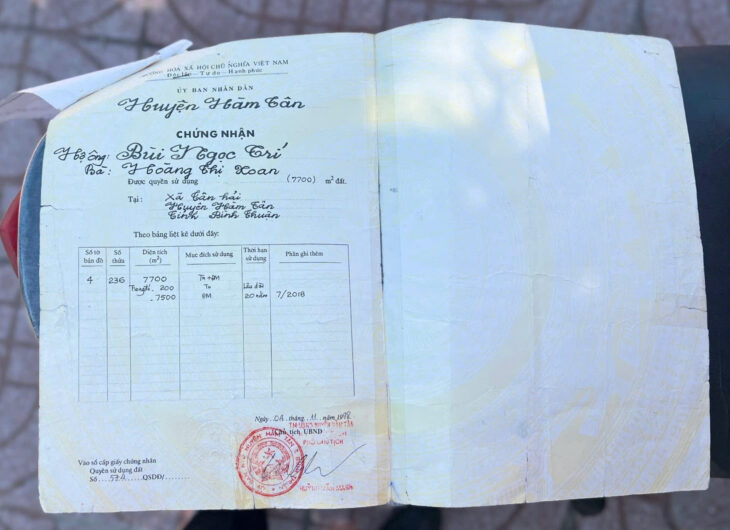 CỘNG HOÀ XÃ HỘI CHỦ NGHĨA VIỆT NAM
Độc lập - Tự do - Hạnh phúc
ỦY BAN NHÂN DÂN
Huyện Hàm Tân
CHỨNG NHẬN
Hộ ông: Bùi Ngọc Trí
Bà: Hoàng Thị Xoan
Được quyền sử dụng (7700) m² đất.
Tại: Xã Tân hải
Huyện Hàm Tân
Tỉnh Bình Thuận
Theo bảng liệt kê dưới đây:
Số tờ bản đồ Số thửa Diện tích (m²) Mục đích sử dụng Thời hạn sử dụng Phần ghi thêm
4 236 7700
200 Lâu dài
- 7500 20 năm 7/2018
Ngày 08 tháng 11 năm 1998
Chủ tịch UBND
PHÓ CHỦ TỊCH
Vào sổ cấp giấy chứng nhận
Quyền sử dụng đất
Số QSDĐ/